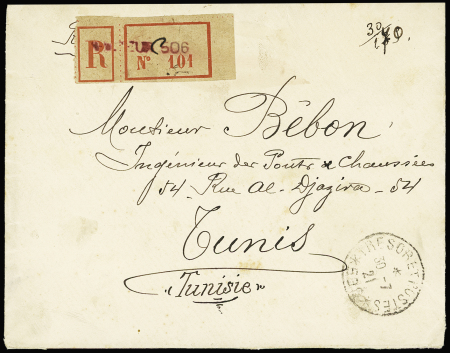 30/1
R
SECTEUR 506
Nº 101
Monsieur Bébon
Ingénieur des Ponts & Chaussées
54 – Rue Al-Djazira – 54
Tunis
"Tunisie"
* TRESOR ET POSTES * 506
30 -7
21